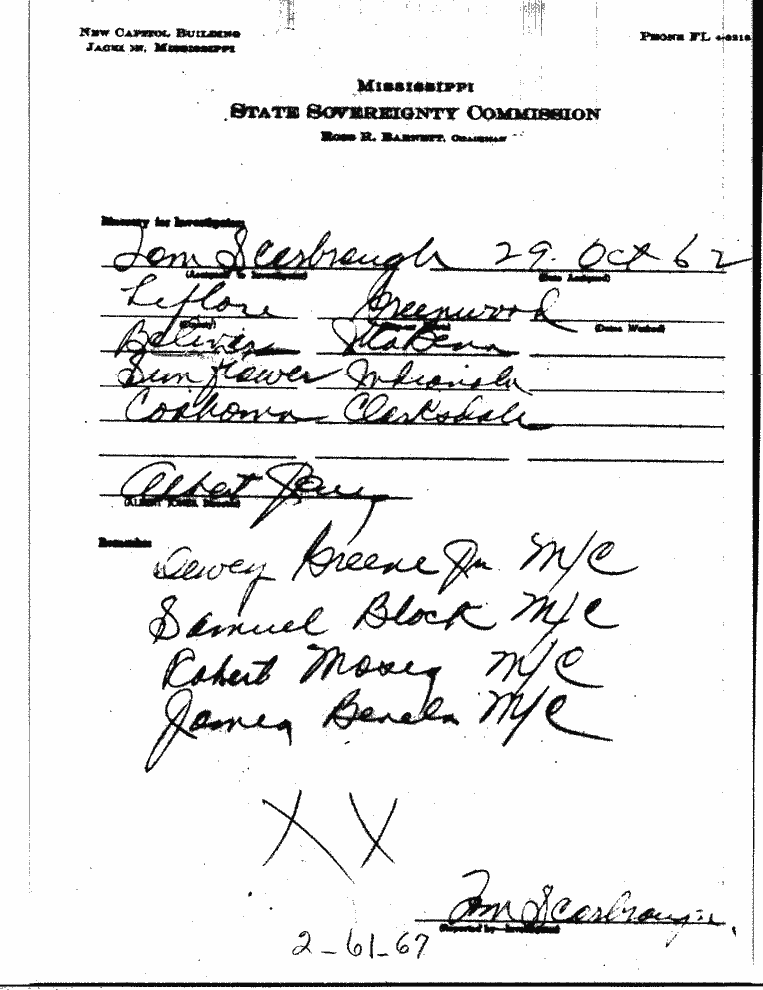 NEW CAPITOL BUILDING
JACKSON, MISSISSIPPI
PHONE FL 4-3218
MISSISSIPPI
STATE SOVEREIGNTY COMMISSION
ROSS R. BARNETT, CHAIRMAN
Itinerary for Investigation
Tom Scarbrough 29. Oct 62
(Assigned to Investigator) (Date Assigned)
Leflore Greenwood
(County) (Dates Worked)
Bolivar Itta Bena
Sunflower Indianola
Coahoma Clarksdale
Albert Jones
(ALBERT JONES, Director)
Remarks:
Dewey Greene Jr M/C
Samuel Block M/C
Robert Moses M/C
James M/C
X X
Tom Scarbrough
(Reported by Investigator)
2-61-67